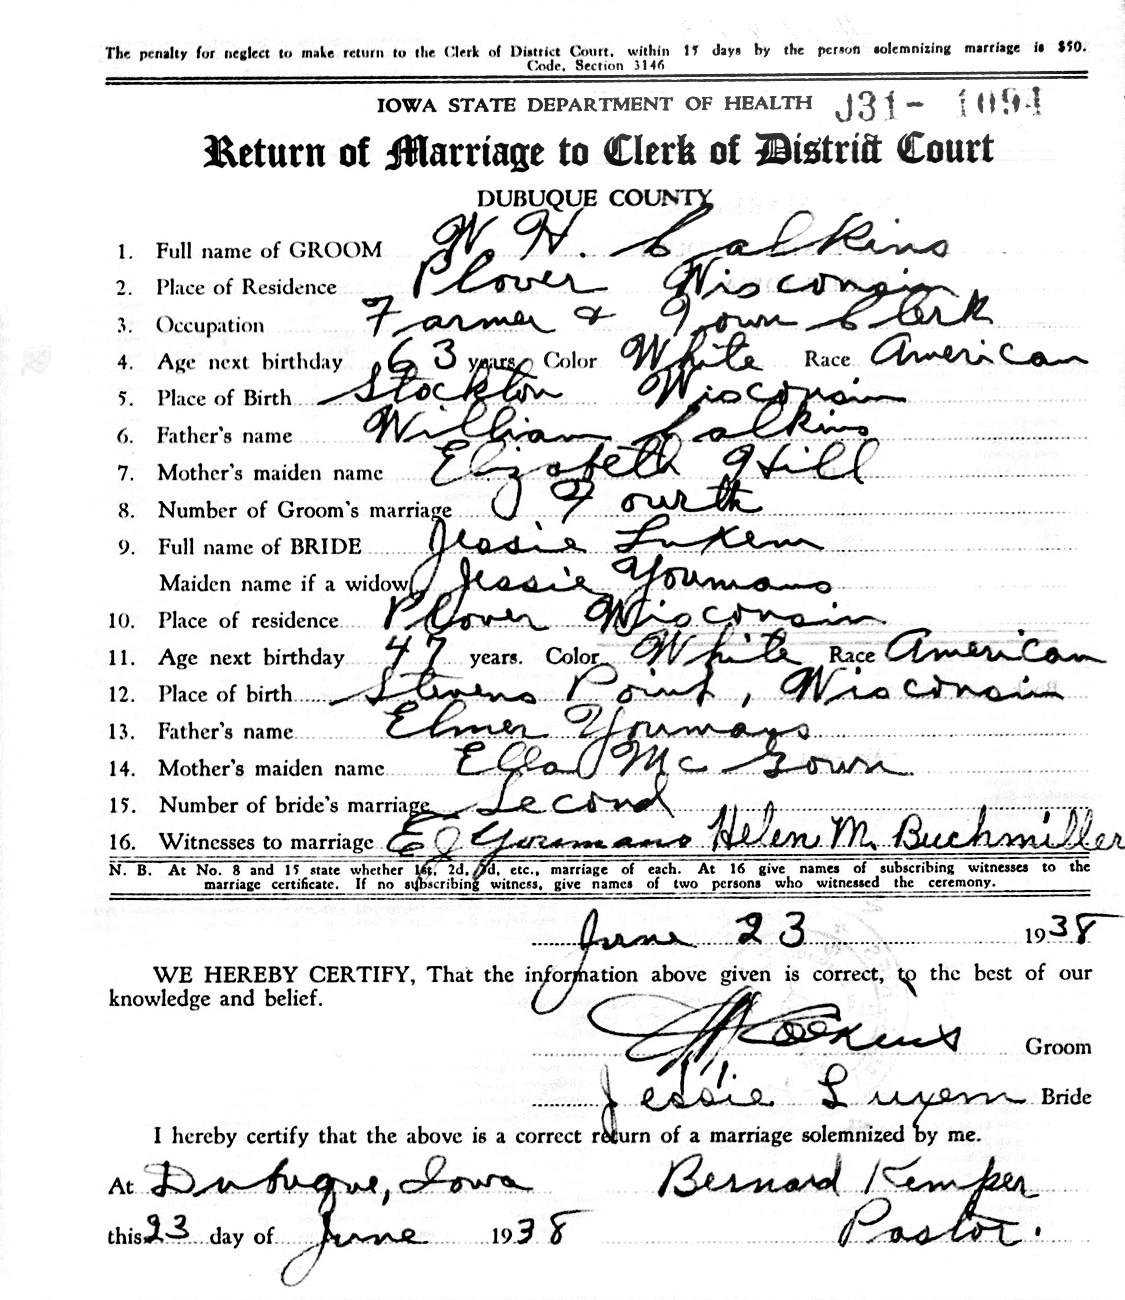 The penalty for neglect to make return to the Clerk of District Court, within 15 days by the person solemnizing marriage is $50.
Code, Section 3146
IOWA STATE DEPARTMENT OF HEALTH J31- 1094
Return of Marriage to Clerk of District Court
DUBUQUE COUNTY
1. Full name of GROOM W H. Calkins
2. Place of Residence Plover Wisconsin
3. Occupation Farmer & Town Clerk
4. Age next birthday 63 years Color White Race American
5. Place of Birth Stockton Wisconsin
6. Father's name William Calkins
7. Mother's maiden name Elizabeth Hill
8. Number of Groom's marriage Fourth
9. Full name of BRIDE Jessie Luxem
Maiden name if a widow Jessie Youmans
10. Place of residence Plover Wisconsin
11. Age next birthday 47 years. Color White Race American
12. Place of birth Stevens Point, Wisconsin
13. Father's name Elmer Youmans
14. Mother's maiden name Ella McGown
15. Number of bride's marriage Second
16. Witnesses to marriage E J Youmans Helen M. Buchmiller
N. B. At No. 8 and 15 state whether 1st, 2d, 3d, etc., marriage of each. At 16 give names of subscribing witnesses to the
marriage certificate. If no subscribing witness, give names of two persons who witnessed the ceremony.
June 23 1938
WE HEREBY CERTIFY, That the information above given is correct, to the best of our
knowledge and belief.
W H Calkins Groom
Jessie Luxem Bride
I hereby certify that the above is a correct return of a marriage solemnized by me.
At Dubuque, Iowa Bernard Kemper
this 23 day of June 1938 Pastor.